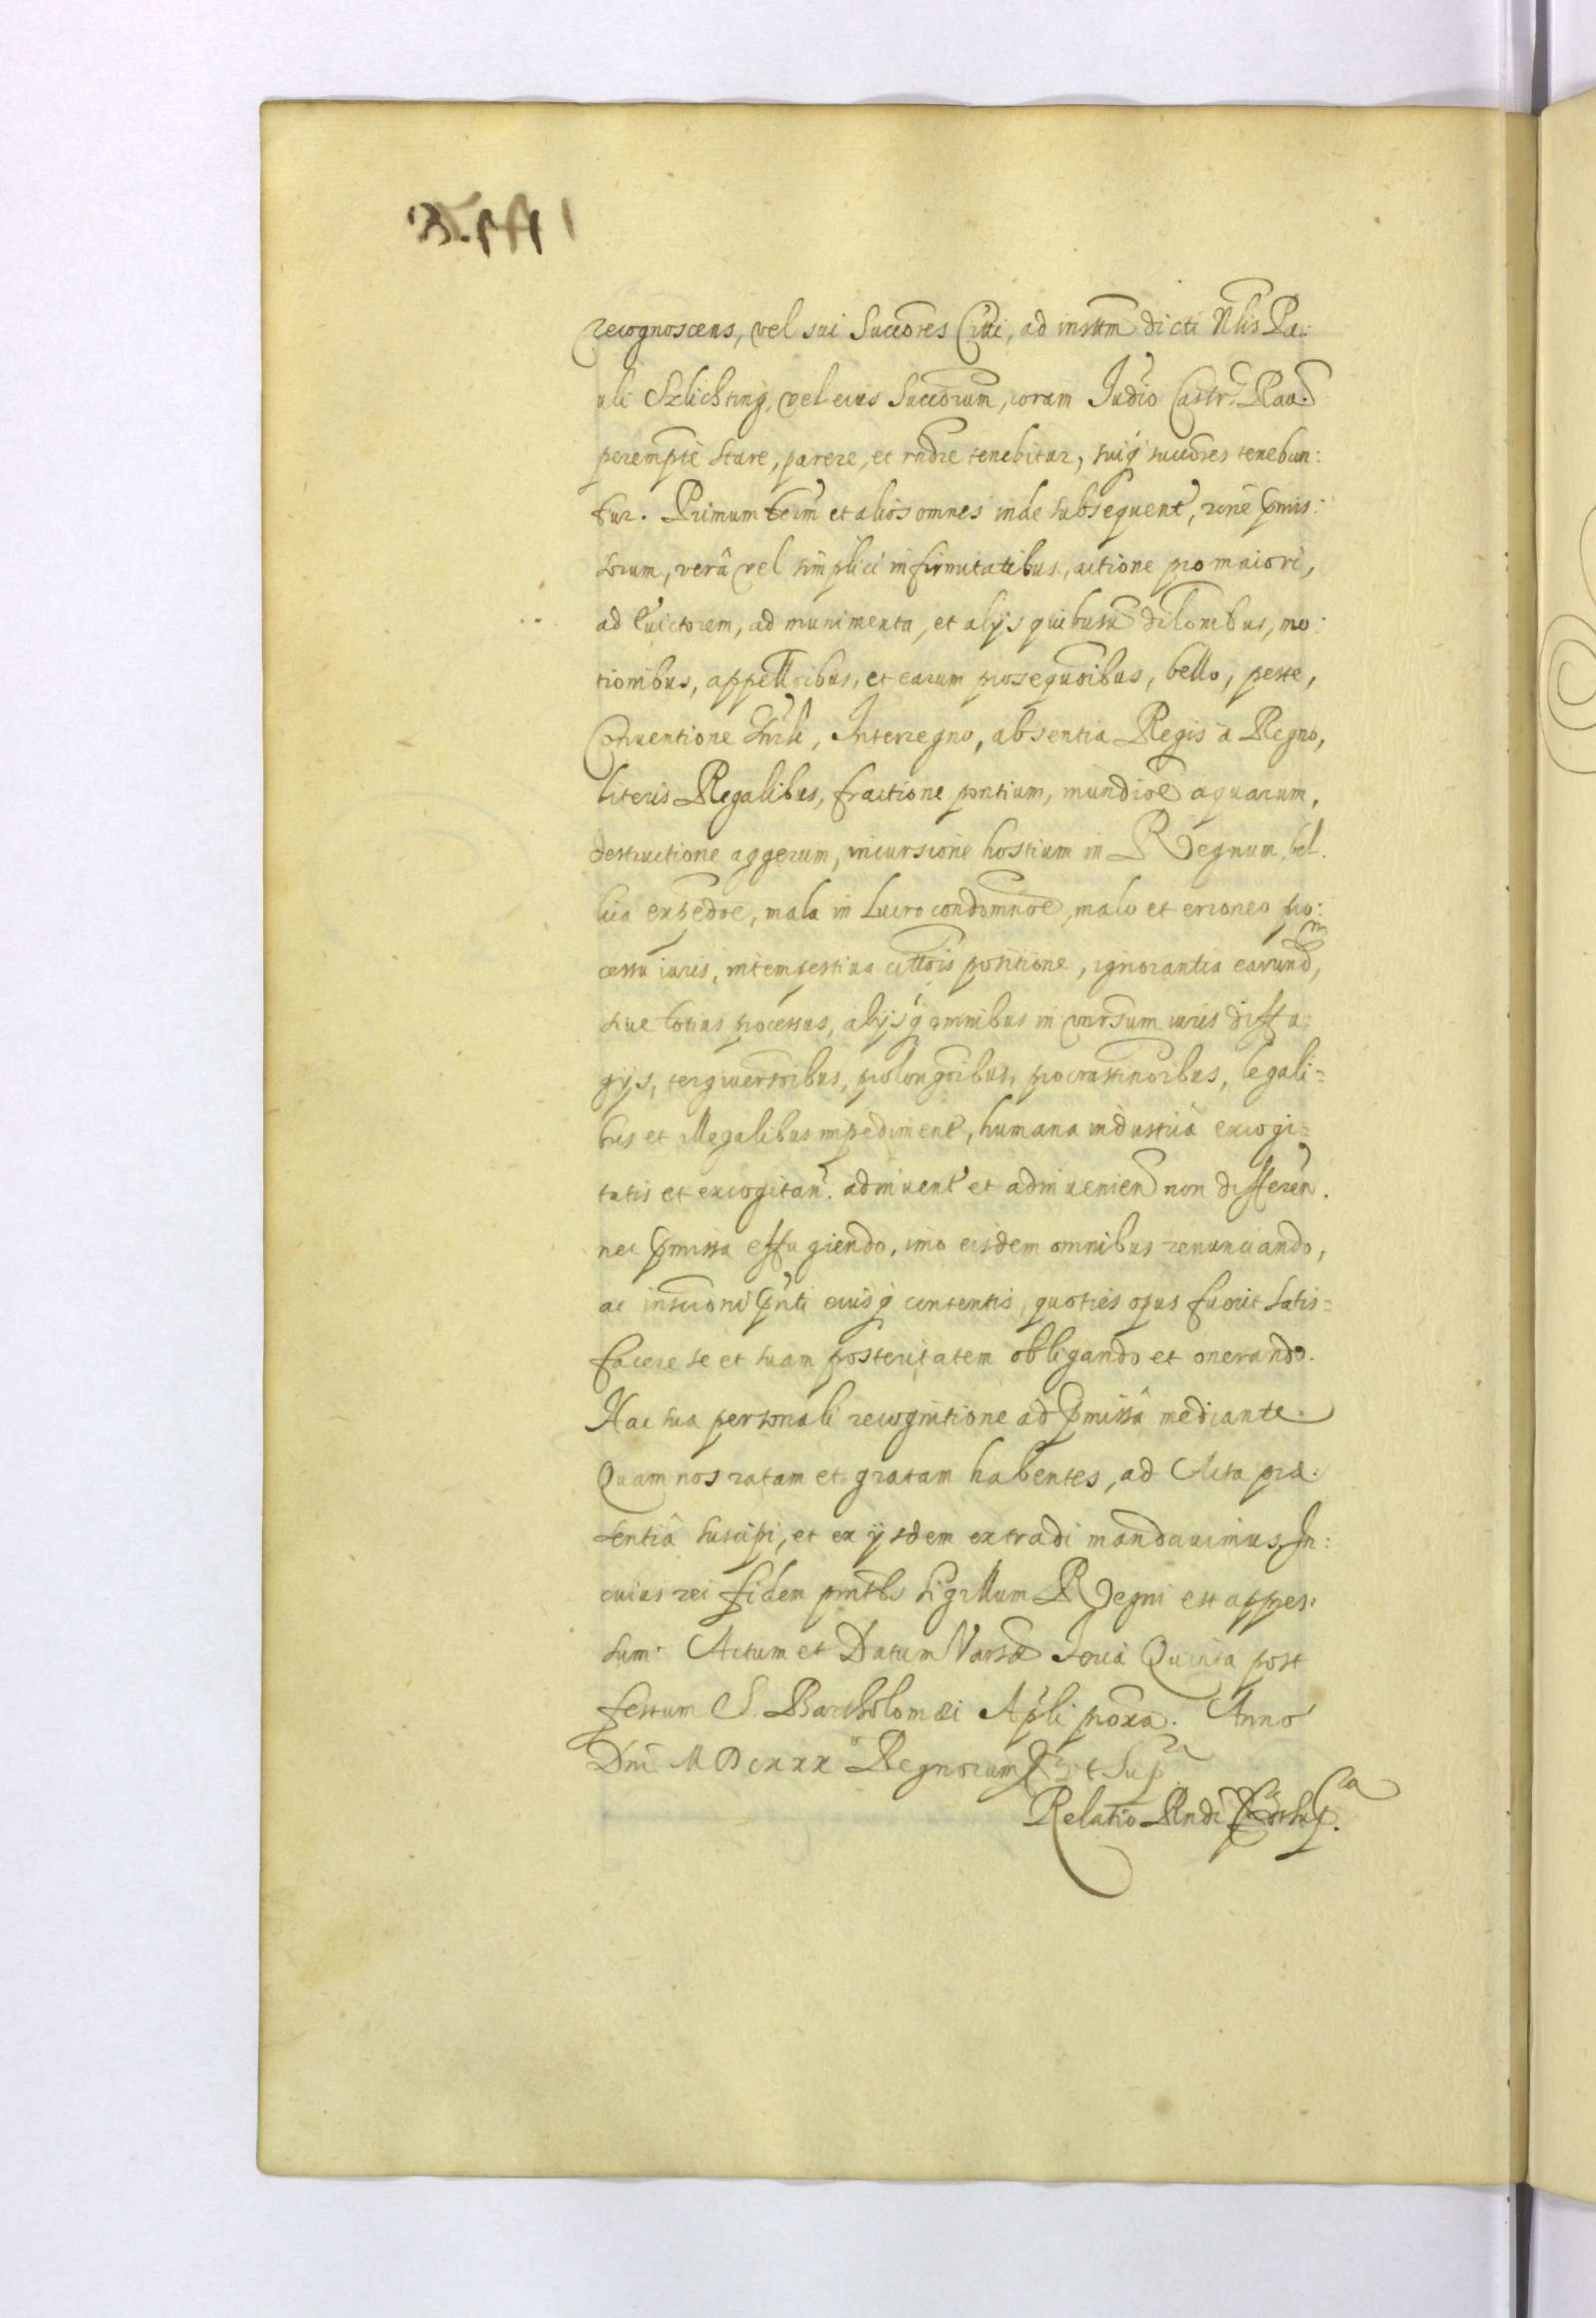 recognoscens, vel sui Succõres Citti, ad instm̃ dicti Nlis Pa:
uli Szlichting, vel eius Succõrum, coram Iudio Castr. Rau.
perempte stare, parere, et rñdre tenebitur, suiq̃ succõres tenebun:
tur. Primum term̃ et alios omnes inde subsequent, rõne p̃mis:
sorum, verâ vel simplici infirmitatibus, actione pro maiori,
ad Euictorem, ad munimenta, et alijs quibusu᷈ dilõnibus, mo:
tionibus, appellõibus, et earum prosequũõibus, bello, peste,
Conuentione Gnrli, Interregno, absentia Regis â Regno,
literis Regalibus, fractione pontium, inundiõe aquarum,
destructione aggerum, incursione hostium in Regnum, bel-
lica expedõe, mala in Lucro condomnõe, malo et erroneo pro:
cessu iuris, intempestiua cittõis positione, ignorantia earund,
siue totius processus, alijsq̃ omnibus in vnirsum iuris diffu:
gijs, tergiuersõibus, prolongõibus, procrastinõibus, legali=
bus et illegalibus impediment, humana industriâ excogi=
tatis et excogitan. adinuent et adinueniend non differen.
nec p̃missa effugiendo, imo eisdem omnibus renunciando,
ac inscriõni p̃nti eiusq̃ contentis, quoties opus fuerit satis=
facere se et suam posteritatem obligando et onerando.
Hac sua personali recognitione ad p̃missa mediante.
Quam nos ratam et gratam habentes, ad Acta præ:
sentiâ suscipi, et ex ijsdem extradi mandauimus, In:
cuius rei fidem pñtbs sigillum Regni est appres.
sum. Actum et Datum Varsæ Feria Quinta post
festum S. Bartholomæi Apli proxa. Anno
Dni MDCXXX° Regnorum et Sup
Relatio Rndi